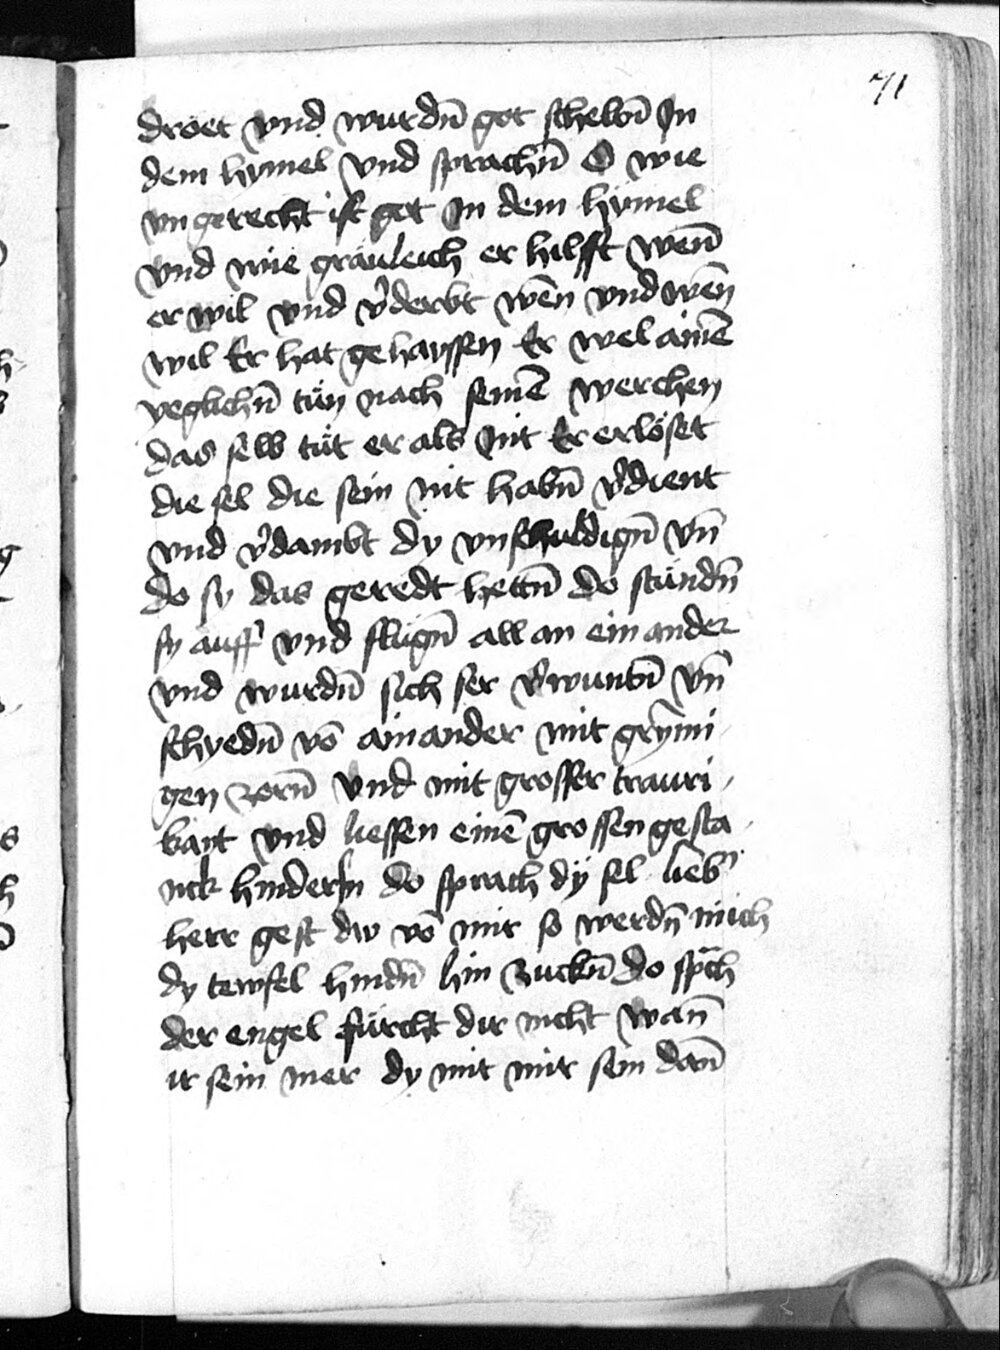 71
droet vnd wurdn̄ got scheltn̄ In
dem hymel vnd sprachn̄ O wie
vngerecht ist got In dem hymel
vnd wie gräuleich er hilfft wen̄
er wil vnd v̉derbt wēn vnd wēn
wil Er hat gehayssen Er wel ainē
yeglichn̄ tůn nach seinē werchen
das selb tůt er als nit Er erlöset
die sel die sein nit habn̄ v̉dient
vnd v̉dambt dy vnschuldign̄ vn̄
do sy das geredt hettn̄ do stůndn̄
sy auff vnd slůgn̄ all an ein ander
vnd wurdn̄ sich ser v̉wuntn̄ vn̄
schyedn̄ vō ainander mit grymi
gen zorn̄ vnd mit grosser trauri
kait vnd liessen einē grossen gesta
nck hinder in do sprach dÿ sel lieb̉
herr gest dw vō mir so werdn̄ mich
dy tewfel hindn̄ hin zuckn̄ do sp̄ch
der engel fürcht dir nicht wan̄
ir sein mer dy mit mir sein dan̄